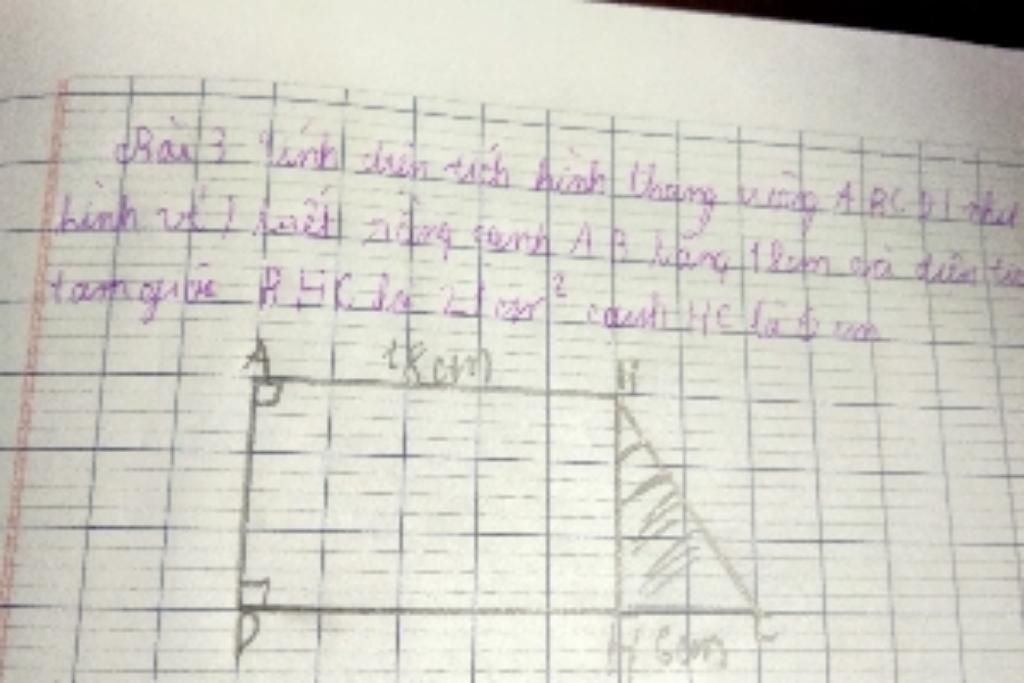 Bài 3 Tính diện tích hình thang vuông ABCD (như
hình vẽ) biết rằng cạnh AB bằng 18cm và diện
tam giác BHC là cm² cạnh HC là 6 cm
A 18cm B
D H 6cm C